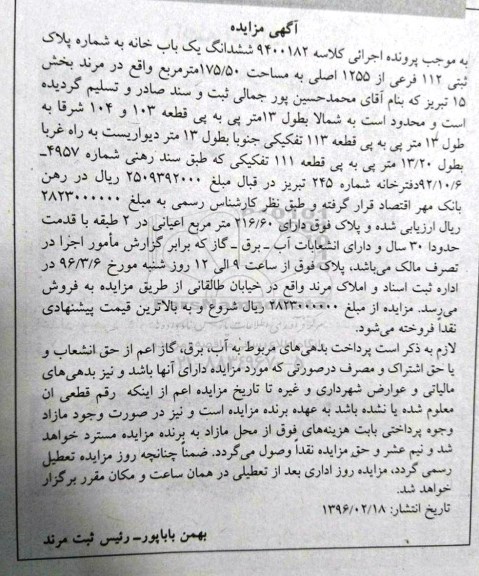 آگهی مزایده
به موجب پرونده اجرائی کلاسه ۹۴۰۰۱۸۲ ششدانگ یک باب خانه به شماره پلاک
ثبتی ۱۱۲ فرعی از ۱۲۵۵ اصلی به مساحت ۱۷۵/۵۰مترمربع واقع در مرند بخش
۱۵ تبریز که بنام آقای محمدحسین پور جمالی ثبت و سند صادر و تسلیم گردیده
است و محدود است به شمالا بطول ۱۳متر پی به پی قطعه ۱۰۳ و ۱۰۴ شرقا به
طول ۱۳ متر پی به پی قطعه ۱۱۳ تفکیکی جنوبا بطول ۱۳ متر دیواریست به راه غربا
بطول ۱۳/۲۰ متر پی به پی قطعه ۱۱۱ تفکیکی که طبق سند رهنی شماره ۴۹۵۷ـ
۹۲/۱۰/۶دفترخانه شماره ۲۴۵ تبریز در قبال مبلغ ۲۵۰۹۳۹۲۰۰۰ ریال در رهن
بانک مهر اقتصاد قرار گرفته و طبق نظر کارشناس رسمی به مبلغ ۲۸۲۳۰۰۰۰۰۰
ریال ارزیابی شده و پلاک فوق دارای ۲۱۶/۶۰ متر مربع اعیانی در ۲ طبقه با قدمت
حدودا ۳۰ سال و دارای انشعابات آب ـ برق ـ گاز که برابر گزارش مأمور اجرا در
تصرف مالک می‌باشد، پلاک فوق از ساعت ۹ الی ۱۲ روز شنبه مورخ ۹۶/۳/۶ در
اداره ثبت اسناد و املاک مرند واقع در خیابان طالقانی از طریق مزایده به فروش
می‌رسد. مزایده از مبلغ ۲۸۲۳۰۰۰۰۰۰ ریال شروع و به بالاترین قیمت پیشنهادی
نقداً فروخته می‌شود.
لازم به ذکر است پرداخت بدهی‌های مربوط به آب، برق، گاز اعم از حق انشعاب و
یا حق اشتراک و مصرف درصورتی که مورد مزایده دارای آنها باشد و نیز بدهی‌های
مالیاتی و عوارض شهرداری و غیره تا تاریخ مزایده اعم از اینکه رقم قطعی ان
معلوم شده یا نشده باشد به عهده برنده مزایده است و نیز در صورت وجود مازاد
وجوه پرداختی بابت هزینه‌های فوق از محل مازاد به برنده مزایده مسترد خواهد
شد و نیم عشر و حق مزایده نقداً وصول می‌گردد. ضمناً چنانچه روز مزایده تعطیل
رسمی گردد، مزایده روز اداری بعد از تعطیلی در همان ساعت و مکان مقرر برگزار
خواهد شد.
تاریخ انتشار: ۱۳۹۶/۰۲/۱۸
بهمن باباپورـ رئیس ثبت مرند